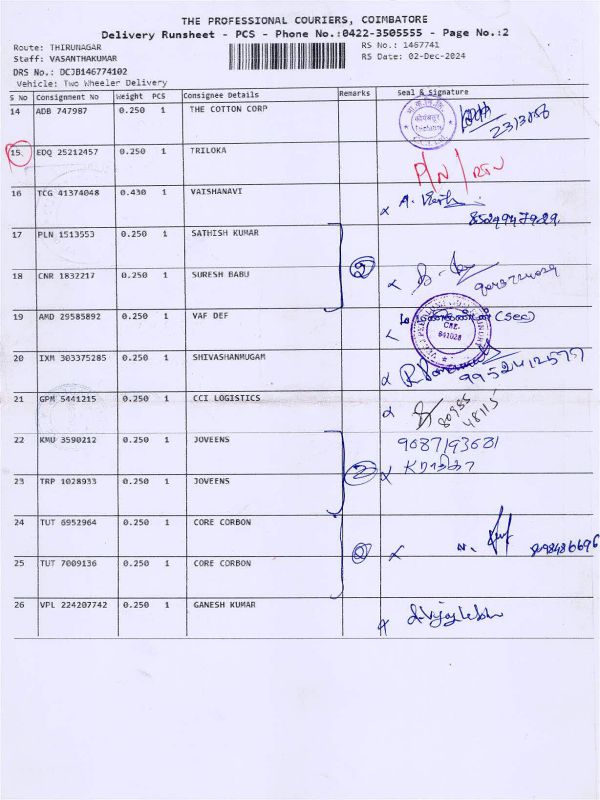 THE PROFESSIONAL COURIERS, COIMBATORE
Delivery Runsheet - PCS - Phone No.:0422-3505555 - Page No.:2
Route: THIRUNAGAR
Staff: VASANTHAKUMAR
DRS No.: DCJB146774102
Vehicle: Two Wheeler Delivery
RS No.: 1467741
RS Date: 02-Dec-2024
S No Consignment No Weight PCS Consignee Details Remarks Seal & Signature
14 ADB 747987 0.250 1 THE COTTON CORP
15 EDQ 25212457 0.250 1 TRILOKA P/N/RTU
16 TCG 41374048 0.430 1 VAISHANAVI
17 PLN 1513553 0.250 1 SATHISH KUMAR
2
18 CNR 1832217 0.250 1 SURESH BABU
19 AMD 29585892 0.250 1 VAF DEF (Sec)
CBE.
641028
20 IXM 303375285 0.250 1 SHIVASHANMUGAM 9952412577
21 GPM 5441215 0.250 1 CCI LOGISTICS 80985 48115
22 KMU 3590212 0.250 1 JOVEENS 9087193681
2
23 TRP 1028933 0.250 1 JOVEENS
24 TUT 6952964 0.250 1 CORE CORBON
2
25 TUT 7009136 0.250 1 CORE CORBON
26 VPL 224207742 0.250 1 GANESH KUMAR